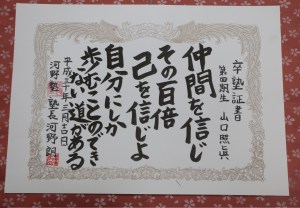 卒塾証書
第四期生 山口照眞
仲間を信じ
その百倍
己を信じよ
自分にしか
歩むことのでき
ない道がある
平成三十年三月吉日
河野塾 塾長 河野